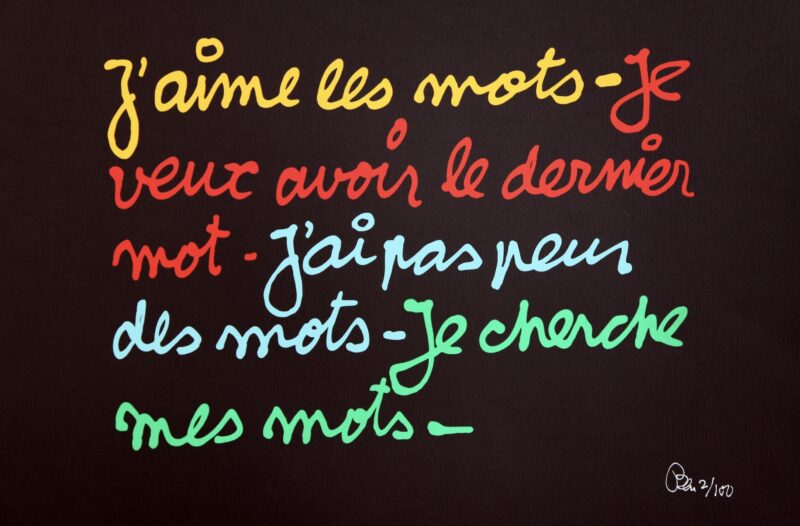 J'aime les mots - Je
veux avoir le dernier
mot - J'ai pas peur
des mots - Je cherche
mes mots -
Ben 2/100